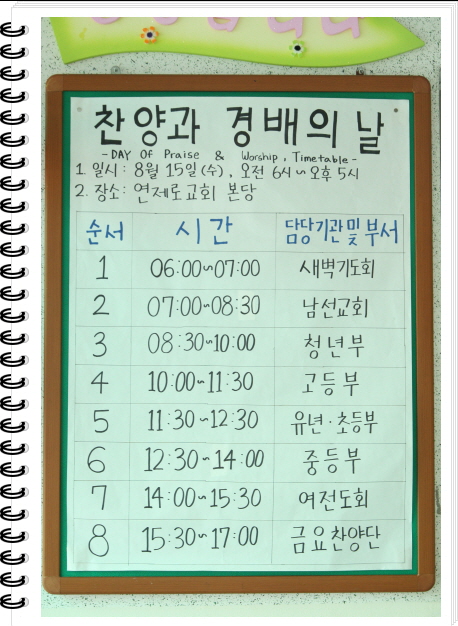 찬양과 경배의 날
-DAY Of Praise & Worship, Timetable-
1. 일시: 8월 15일(수), 오전 6시~오후 5시
2. 장소: 연제로교회 본당
순서 시간 담당기관및부서
1 06:00~07:00 새벽기도회
2 07:00~08:30 남선교회
3 08:30~10:00 청년부
4 10:00~11:30 고등부
5 11:30~12:30 유년·초등부
6 12:30~14:00 중등부
7 14:00~15:30 여전도회
8 15:30~17:00 금요찬양단